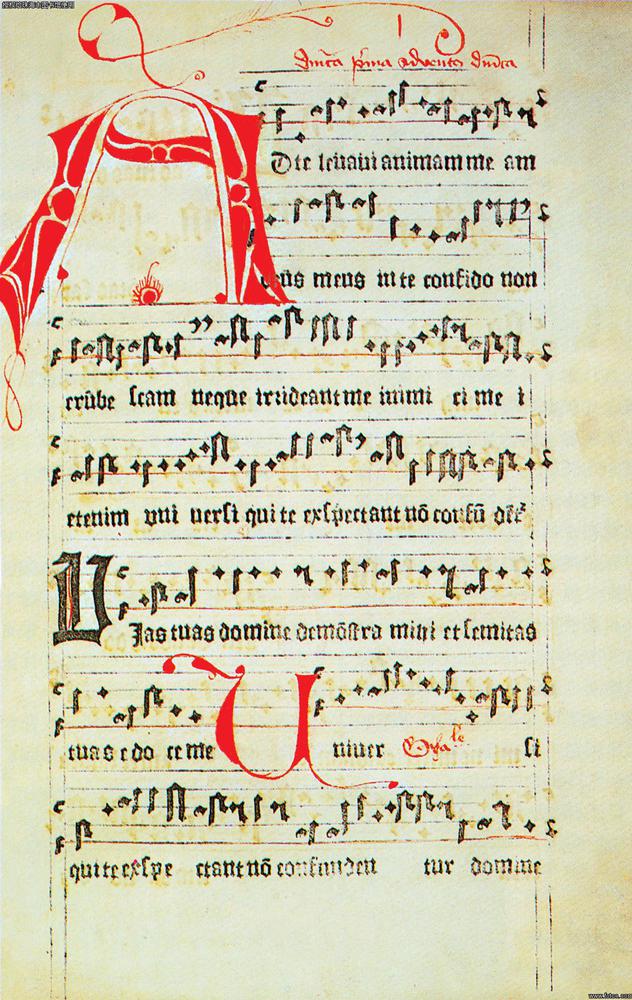 dnica prima adventus dnica
A D te levavi animam me am
deus meus in te confido non
erube scam neque irrideant me inimi ci me i
etenim vni versi qui te exspectant nō confū
Vias tuas domine demōstra michi et semitas
tuas e do ce me Univer si
qui te exspe ctant nō confunden tur domine
www.fotoe.com